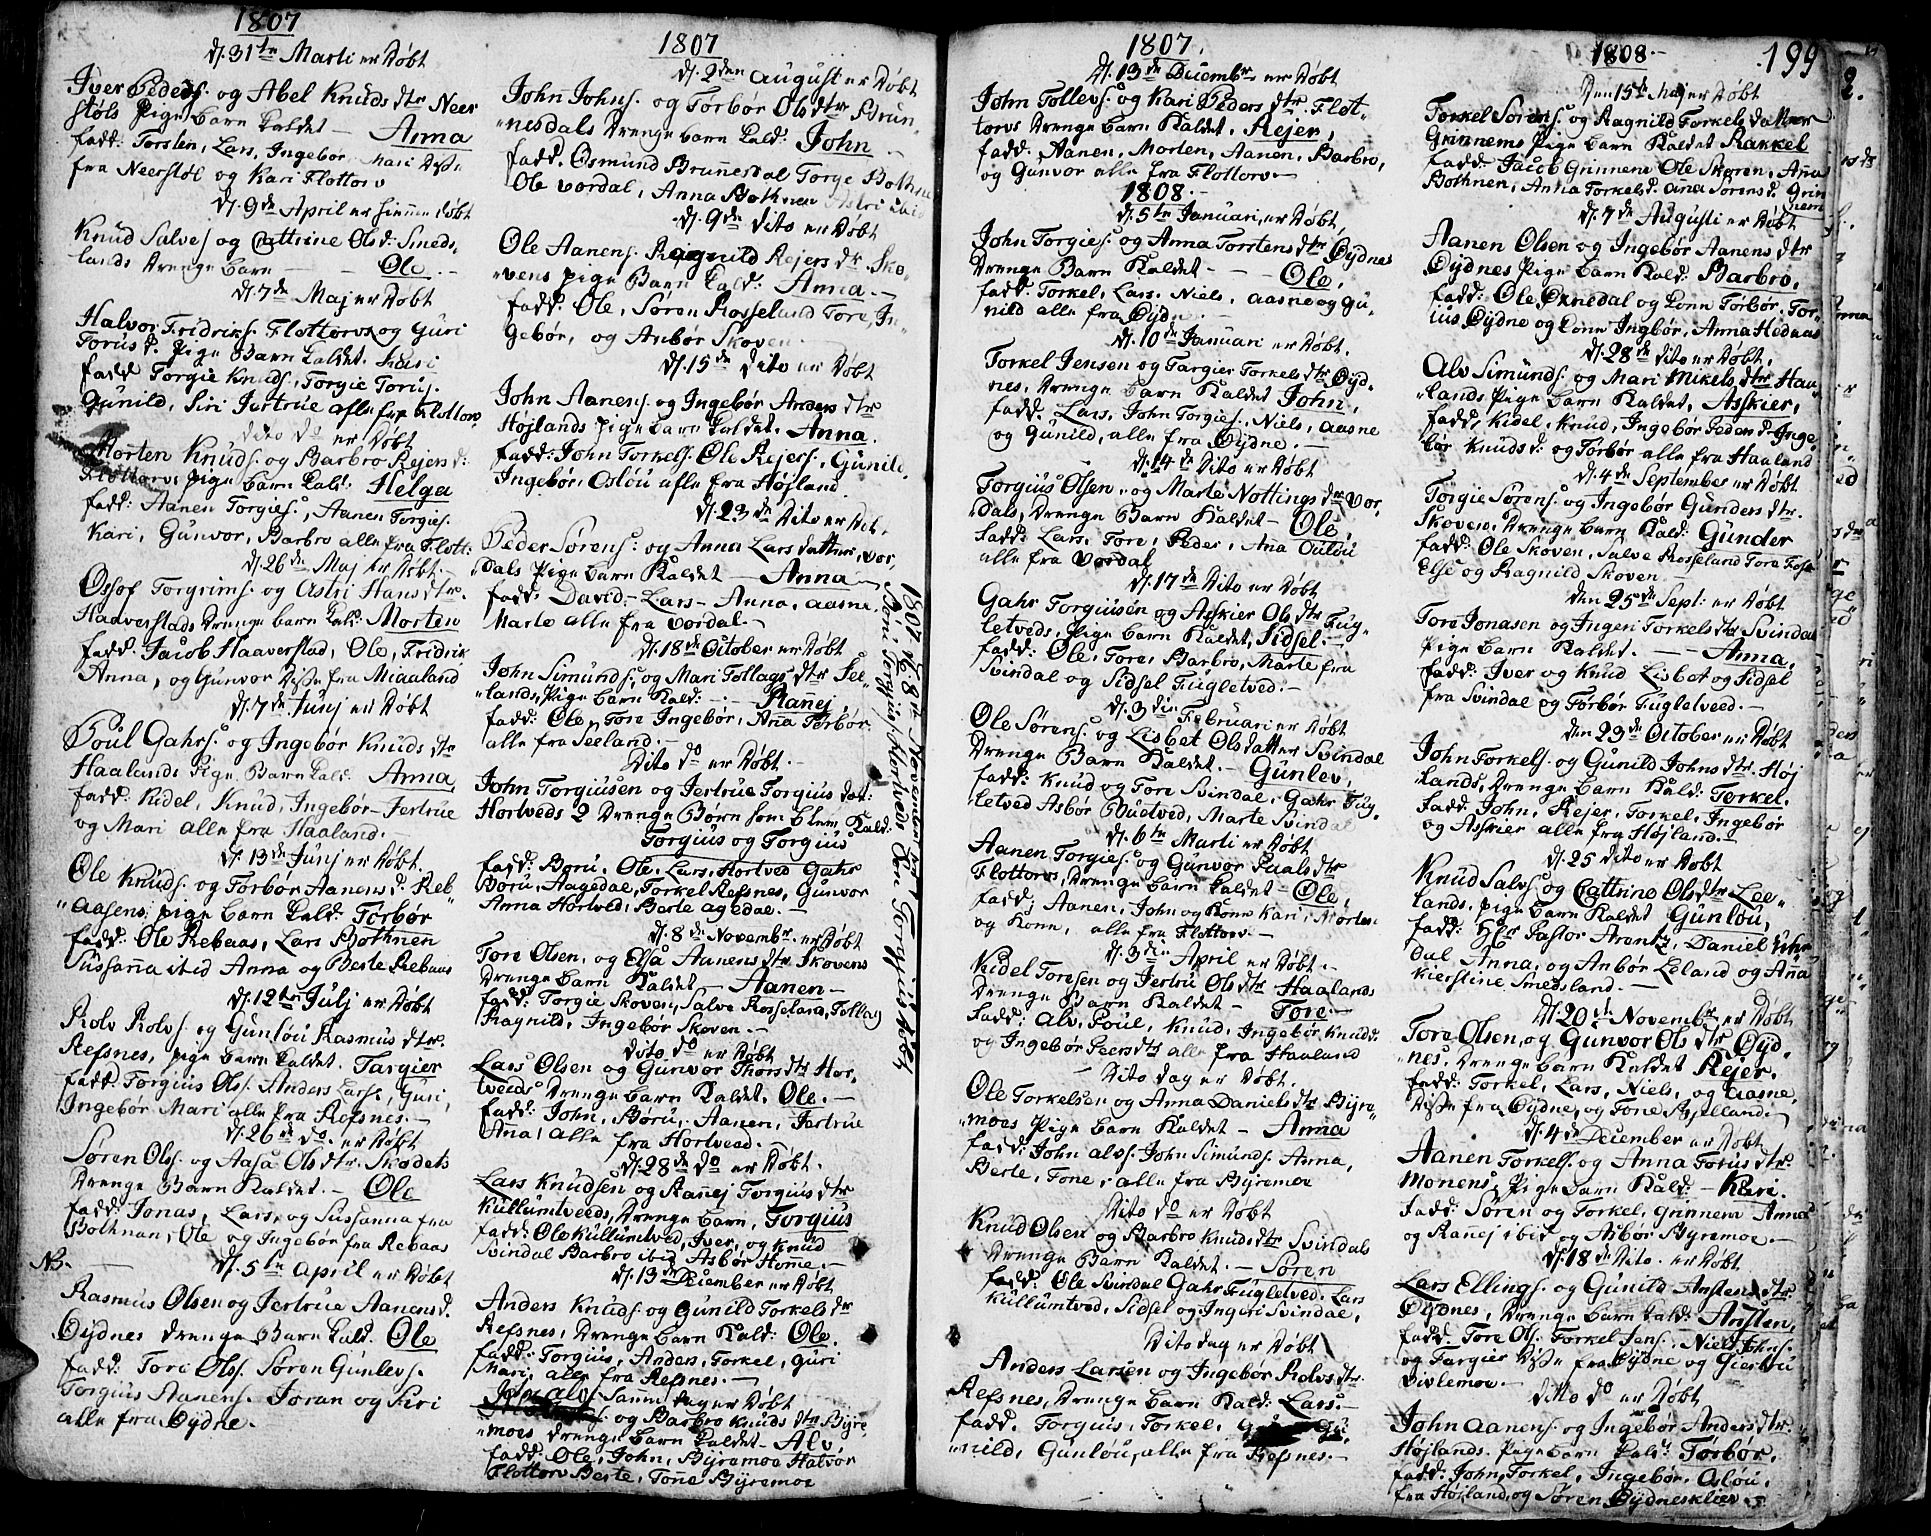 1807
d. 31te Marti er Døbt
Iver Peders. og Abel Knuds dtr Neer
støls Pige Barn Kaldet — Anna
fadd: Torsten, Lars, Ingebør, Mari disse
fra Neerstøl og Kari Flottorv
d. 9de April er hiemme døbt
Knud Salves. og Cattrine Ols d: Smeds-
lands Drenge barn — — Ole.
d. 7de Maj er Døbt
Halvor Fridriks. Flottorvs og Guri
Torus d. Pige Barn Kaldet. Kari
fadd Torgie Knuds., Torgie Torus.
Gunild, Siri Jertrue alle fra Flottorv
dito do er Døbt
Morten Knuds. og Barbro Rejers d:
Flottorvs pige barn Kald: Helga
fadd: Aanen Torgies., Aanen Torgies.
Kari, Gunvor, Barbro alle fra Flott:
d. 26de Maj er Døbt.
Ossof Torgrims. og Astri Hans dtr.
Haaverstads Drenge barn Kald: Morten
fadd. Jacob Haaverstad, Ole, Fridrik
Anna, og Gunvor disse fra Miaaland
d. 7de Junj er Døbt
Poul Gahrs. og Ingebør Knuds dtr
Haalands Pige Barn Kald. Anna
fadd. Kidel, Knud, Ingebør Jertrue
og Mari alle fra Haaland.
d. 13de Junj er Døbt.
Ole Knuds. og Torbør Aanens d. Reb"
"aasens pige barn Kald: Torbør
fadd: Ole Rebaas, Lars Bothnen
Sussanna itid Anna og Berte Rebaas
d. 12te Julj er Døbt
Rolv Rolvs. og Gunlou Rasmus dtr.
Refsnes, pige barn Kaldet. Targier
fadd: Torgius Ols., Anders Lars., Guri,
Ingebør Mari alle fra Refsnes.
d. 26de do. er Døbt
Søren Ols. og Aasa Ols dtr. Skadets
Drenge Barn Kaldet. — Ole
fadd: Jonas, Lars, og Sussanna fra
Bothnan, Ole og Ingebør fra Rebaas
NB. — d. 5te April er Døbt
Rasmus Olsen og Jertrue Aanens d.
Øydnes drenge Barn Kald. Ole
fadd: Tore Ols. Søren Gunlevs.
Torgius Aanens. Joran og Siri
alle fra Øydne.
1807
d. 2den August er Døbt
John Johns. og Torbør Ols dtr Brun-
"nesdals Drenge barn Kald: John
fadd. Osmund Brunnesdal Torge Bothnen
Ole Vordal, Anna Bothnen Astri ibid
d. 9de Dito er Døbt
Ole Aanens. Ragnild Rejers dr Sko-
"vens pige Barn Kald: Anna.
fadd: Ole, Søren Rosseland Tore In-
gebør, og Anbør Skoven
d. 15de Dito er Døbt
John Aanens. og Ingebør Anders dtr
Højlands pige barn Kaldet. Anna.
fadd: John Torkels. Ole Rejers., Gunild,
Ingebør, Oslou alle fra Højland.
d. 23de Dito er Døbt.
Peder Sørens: og Anna Lars datter, Vor,
"dals Pige barn Kaldet — Anna
fadd. David — Lars — Anna, Aasne,
Marte alle fra Vordal.
d. 18de October er Døbt
John Simunds. og Mari Tollags dtr See-
"lands, Pige barn Kald: — Rannej
fadd: Ole, Tore Ingebør, Ana Torbør
alle fra Seeland.
Dito do er Døbt.
John Torgiusen og Jertrue Torgius dat:
Hortveds 2 Drenge Børn som blew Kald.
Torgius og Torgius
fadd: Boru, Ole, Lars, Hortved Gahr
Boru, Aagedal, Torkel Refsnes, Gunvor
Anna Hortved, Berte agedal.
d. 8de Novembr. er Døbt
Tore Olsen, og Elsa Aanens dtr. Skovens
Drenge barn Kaldet — Aanen —
fadd: Torgie Skoven, Salve Rosseland, Tollag
Ragnild, Ingebør Skoven.
Dito do er Døbt
Lars Olsen og Gunvor Thors dtr Hor,
tveeds Drenge barn Kaldet. Ole.
fadd: John, Børu, Aanen, Jertrue
Ana, alle fra Hortveed.
d. 28de do er Døbt.
Lars Knudsen og Rannej Torgius dtr
Kullumtveeds, Drenge barn, Torgius
fadd: Ole Kullumtved, Iver, og Knud
Svindal Barbro ibid Asbør Homme.
d. 13de December er Døbt
Anders Knuds. og Gunild Torkels dr
Refsnes, Drenge barn Kald: Ole.
fadd: Torgius, Anders, Torkel, Guri
Mari, alle fra Refsnes.
John alvs. Samme dag er Døbt
og Barbro Knuds dtr Byre-
"moes drenge barn Kaldet — Alv.
fadd: Ole, John, Byremoe Halvor
Flottorv Berte, Tone Byremoe
1807 d. 8de November er
Børu Torgjus Hortveds Søn Torgius Døbt
1807.
d. 13de Decembr er Døbt
John Tollevs. og Kari Peders dtr Flot-
torvs Drenge barn Kaldet. Rejer,
fadd: Aanen, Morten, Aanen, Barbro,
og Gunvor alle fra Flottorv
1808.
d. 5te Januari er Døbt,
John Torgies. og Anna Torstens dtr Øydnes
Drenge Barn Kaldet — — Ole,
fadd: Torkel, Lars, Niels, aasne og Gu-
nild alle fra Øydne.
d. 10de Januari er Døbt.
Torkel Jensen og Targier Torkels dtr Øyd.
nes, Drenge barn Kaldet John,
fadd: Lars, John Torgies., Niels, aasne
og Gunild, alle fra Øydne.
d. 14de Dito er Døbt
Torgius Olsen, og Marte Nottings dr Vor,
"dals, Drenge Barn Kaldet — Ole,
fadd: Lars, Tore, Peder, Ana Oulou
alle fra Vordal
d. 17de Dito er Døbt
Gahr Torgiusen og Asskier Ols dtr Fug-
letveds, Pige barn Kaldet, Sidsel.
fadd: Ole, Tore, Barbro, Marte fra
Svindal og Sidsel Fugletved.
d. 3die Februari er Døbt
Ole Sørens. og Lisbet Olsdatter Svindal
Drenge Barn Kaldet. — Gunlev.
fadd: Knud og Tore Svindal, Gahr Fug-
letved Asbør Duetved, Marte Svindal
d. 6te Marti er Døbt
Aanen Torgies. og Gunvor Paals dtr
Flottorvs, Drenge barn Kaldet — Ole,
fadd. Aanen, John og Kone Kari, Morten
og Kone, alle fra Flottorv.
d. 3die April er Døbt.
Kidel Toresen og Jertru Ols dtr Haalands
Drenge Barn Kaldet — Tore.
fadd: Alv, Poul, Knud, Ingebør Knuds d.
og Ingebør Peers dtr alle fra Haaland
Dito dag er Døbt.
Ole Torkelsen og Anna Daniels dtr Byre-
"moes Pige barn Kaldet — Anna
fadd: John alvs. John Simunds. Anna,
Berte, Tone, alle fra Byremoe
Dito do er Døbt
Knud Olsen og Barbro Knuds dtr Svindals
Drenge Barn Kaldet. — Søren
fadd: Ole Svindal Gahr Fugletved. Lars
Kullumtved, Sidsel og Ingeri Svindal,
Dito dag er Døbt
Anders Larsen og Ingebør Rolvs dtr.
Refsnes, Drenge barn Kald: Lars.
fadd. Torgius, Torkel, Gu-
"nild, Gunlou, alle fra Refsnes.
1808.
199
Den 15de Maj er Døbt
Torkel Sørens. og Ragnild Torkels datter
Grinnems Pige barn Kaldet Rakkel
fadd: Jacob Grinnem Ole Skaren, Ana
Bothnen, Anna Torkels d. ana Sørens d. Grin
nem
d. 7de Augusti er Døbt
Aanen Olsen og Ingebør Aanens dtr
Øydnes Pige barn Kald: Barbro,
fadd: Ole Ornedal og Kone Torbør. Tor-
ius Øydne og Kone Ingbør, Anna Hednaas
d. 28de Dito er Døbt,
Alv Simunds. og Mari Mikels dtr Haa-
"lands Pige barn Kaldet, Asskier,
fadd, Kidel, Knud, Ingebør Peders d. Inge
bør Knuds d: og Torbør alle fra Haaland
d. 4de September er Døbt
Torgie Sørens. og Ingebør Gunders dtr.
Skovens, Drenge barn Kald: Gunder
fadd: Ole Skoven, Salve Rosseland Tore Foss
Else og Ragnild Skoven
den 25de Sept: er Døbt
Tore Jonasen og Ingeri Torkels dtr Svindal
Pige barn Kaldet. — Anna.
fadd: Iver og Knud Lisbet og Sidsel
fra Svindal og Torbør Fugletveed.
den 23de October er Døbt
John Torkels. og Gunild Johns dtr Høj
"lands, Drenge barn Kald: Torkel.
fadd: John, Rejer, Torkel, Ingebør
og Asskier alle fra Højland.
d. 25 Dito er Døbt
Knud Salvs. og Cattrine Ols dtr Lee-
lands, pige barn Kaldet Gunlou,
fadd: Hr Pastor Arentz, Daniel
dal Anna, og Anbør Leland og Ana
Kierstine Smedsland.
d. 20de Novembr er Døbt.
Tore Olsen, og Gunvor Ols dtr Øyd-
"nes. Drenge barn Kaldet Rejer.
fadd: Torkel, Lars, Niels, og Aasne,
Disse fra Øydne, og Tone Aspelland.
d. 4de December er Døbt
Aanen Torkels. og Anna Torus dtr.
Monens, Pige barn Kald: — Kari.
fadd: Søren og Torkel, Grinnem Anna
og Rannej ibid og Asbør Byremoe.
d. 18de Dito er Døbt
Lars Ellings. og Gunild Anstens dtr
Øydnes, Drenge barn Kald: Ansten,
fadd: Tore Ols. Torkel Jens. Niels Johns.
og Targier Disse fra Øydne og Gierbru
Bivlemoe.
Ditto do er Døbt
John Aanens. og Ingebør Anders dtr.
Højlands. Pige barn Kald: Torbør.
fadd: John, Torkel, Ingebør, Oslou,
fra Højland, og Søren Øydneskleev